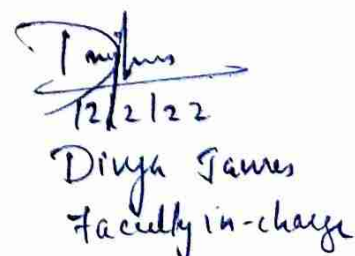 12/2/22
Divya James
Faculty in-charge